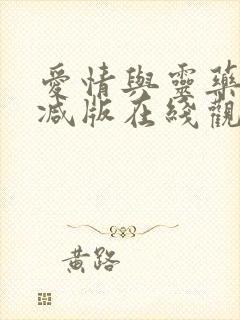 愛情與靈藥
減版在綫觀
黄路